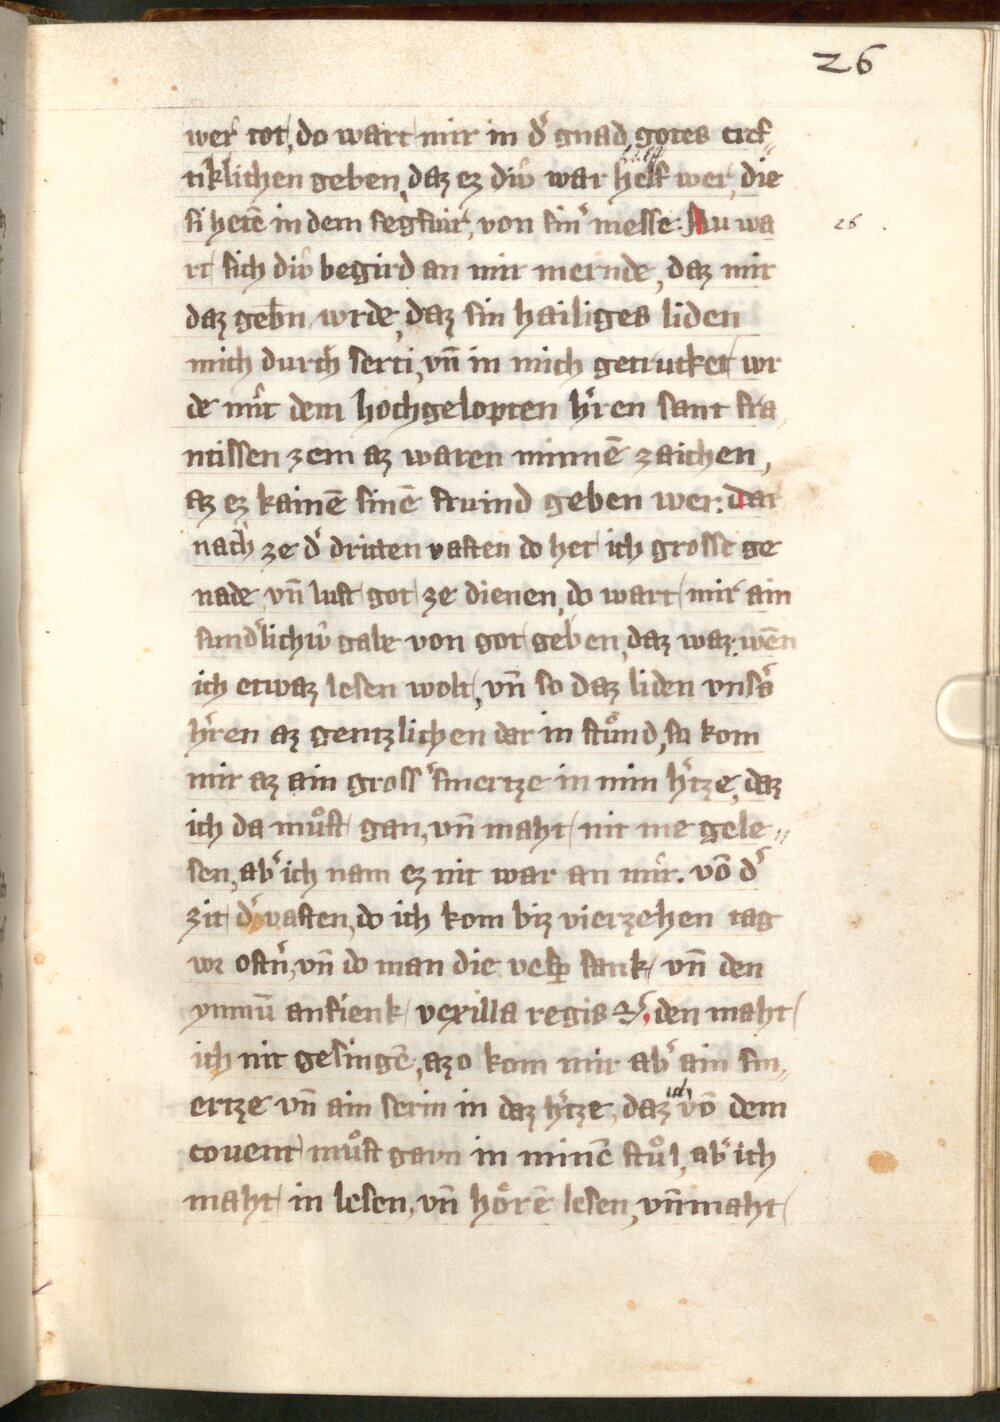 26
wer tot, do wart mir in dˀ gnad gotes cref„
tiklichen geben, daz ez diu̍ war helf wer, die
si hetē in dem fegfiur, von sinˀ messe. Nu wa
rt sich diu̍ begird an mir mernde, daz mir
daz gebn wrde, daz sin hailiges liden
mich durch serti, vn̄ in mich getrucket wr
de mit dem hochgelopten hˀren sant fra
ncissen zem az waren minnē zaichen,
az ez kainē sinē fruind geben wer. Dar
nach ze dˀ dritten vasten do het ich grosse ge
nade vn̄ lust got ze dienen, do wart mir ain
sundˀlichiu̍ gabe von got geben, daz waz, wēn
ich etwaz lesen wolt, vn̄ so daz liden vnsˀs
hˀren az gentzlichen dar in stůnd, so kom
mir az ain grossˀ smertze in min hˀtze, daz
ich da můst gan, vn̄ maht nit me gele„
sen, abˀ ich nam ez nit war an mir. vō dˀ
zit dˀ vasten, do ich kom biz vierzehen tag
vor ostˀn, vn̄ do man die vesp̱ sank vn̄ den
ymnū anfienk vexilla regis ⁊c̓, den maht
ich nit gesingē, azo kom mir abˀ ain sm„
ertze vn̄ ain serin in daz hˀtze, daz ich vō dem
covent můst gavn in minē stůl, abˀ ich
maht in lesen, vn̄ hörē lesen, vn̄ maht
26